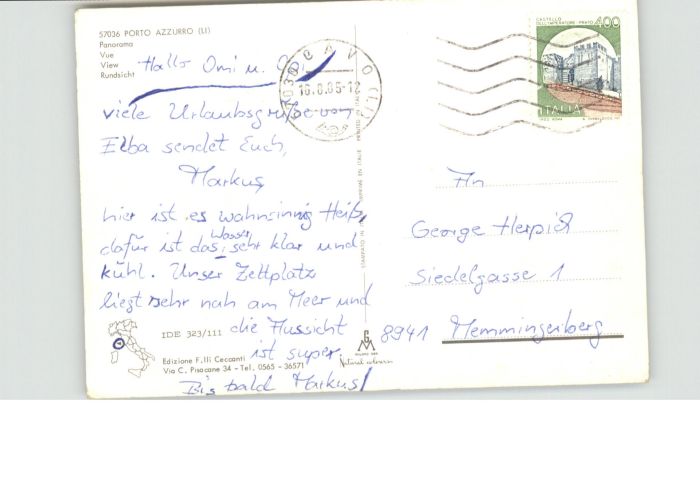 57036 PORTO AZZURRO (LI)
Panorama
Vue
View
Rundsicht
Hallo Omi u.
viele Urlaubsgrüße von
Elba sendet Euch,
Markus
hier ist es wahnsinnig Heiß,
dafür ist das Wasser sehr klar und
kühl. Unser Zeltplatz
liegt sehr nah am Meer und
die Aussicht
ist super.
Bis bald Markus!
IDE 323/111
Edizione F.lli Ceccanti
Via C. Pisacane 34 - Tel. 0565 - 36571
CAVO (LI)
57030
16.8.85-12
PRINTED IN ITALY
MILANO
Natural colorcom
CASTELLO
DELL'IMPERATORE · PRATO
400
ITALIA
An
George Herpich
Siedelgasse 1
8941 Memmingerberg